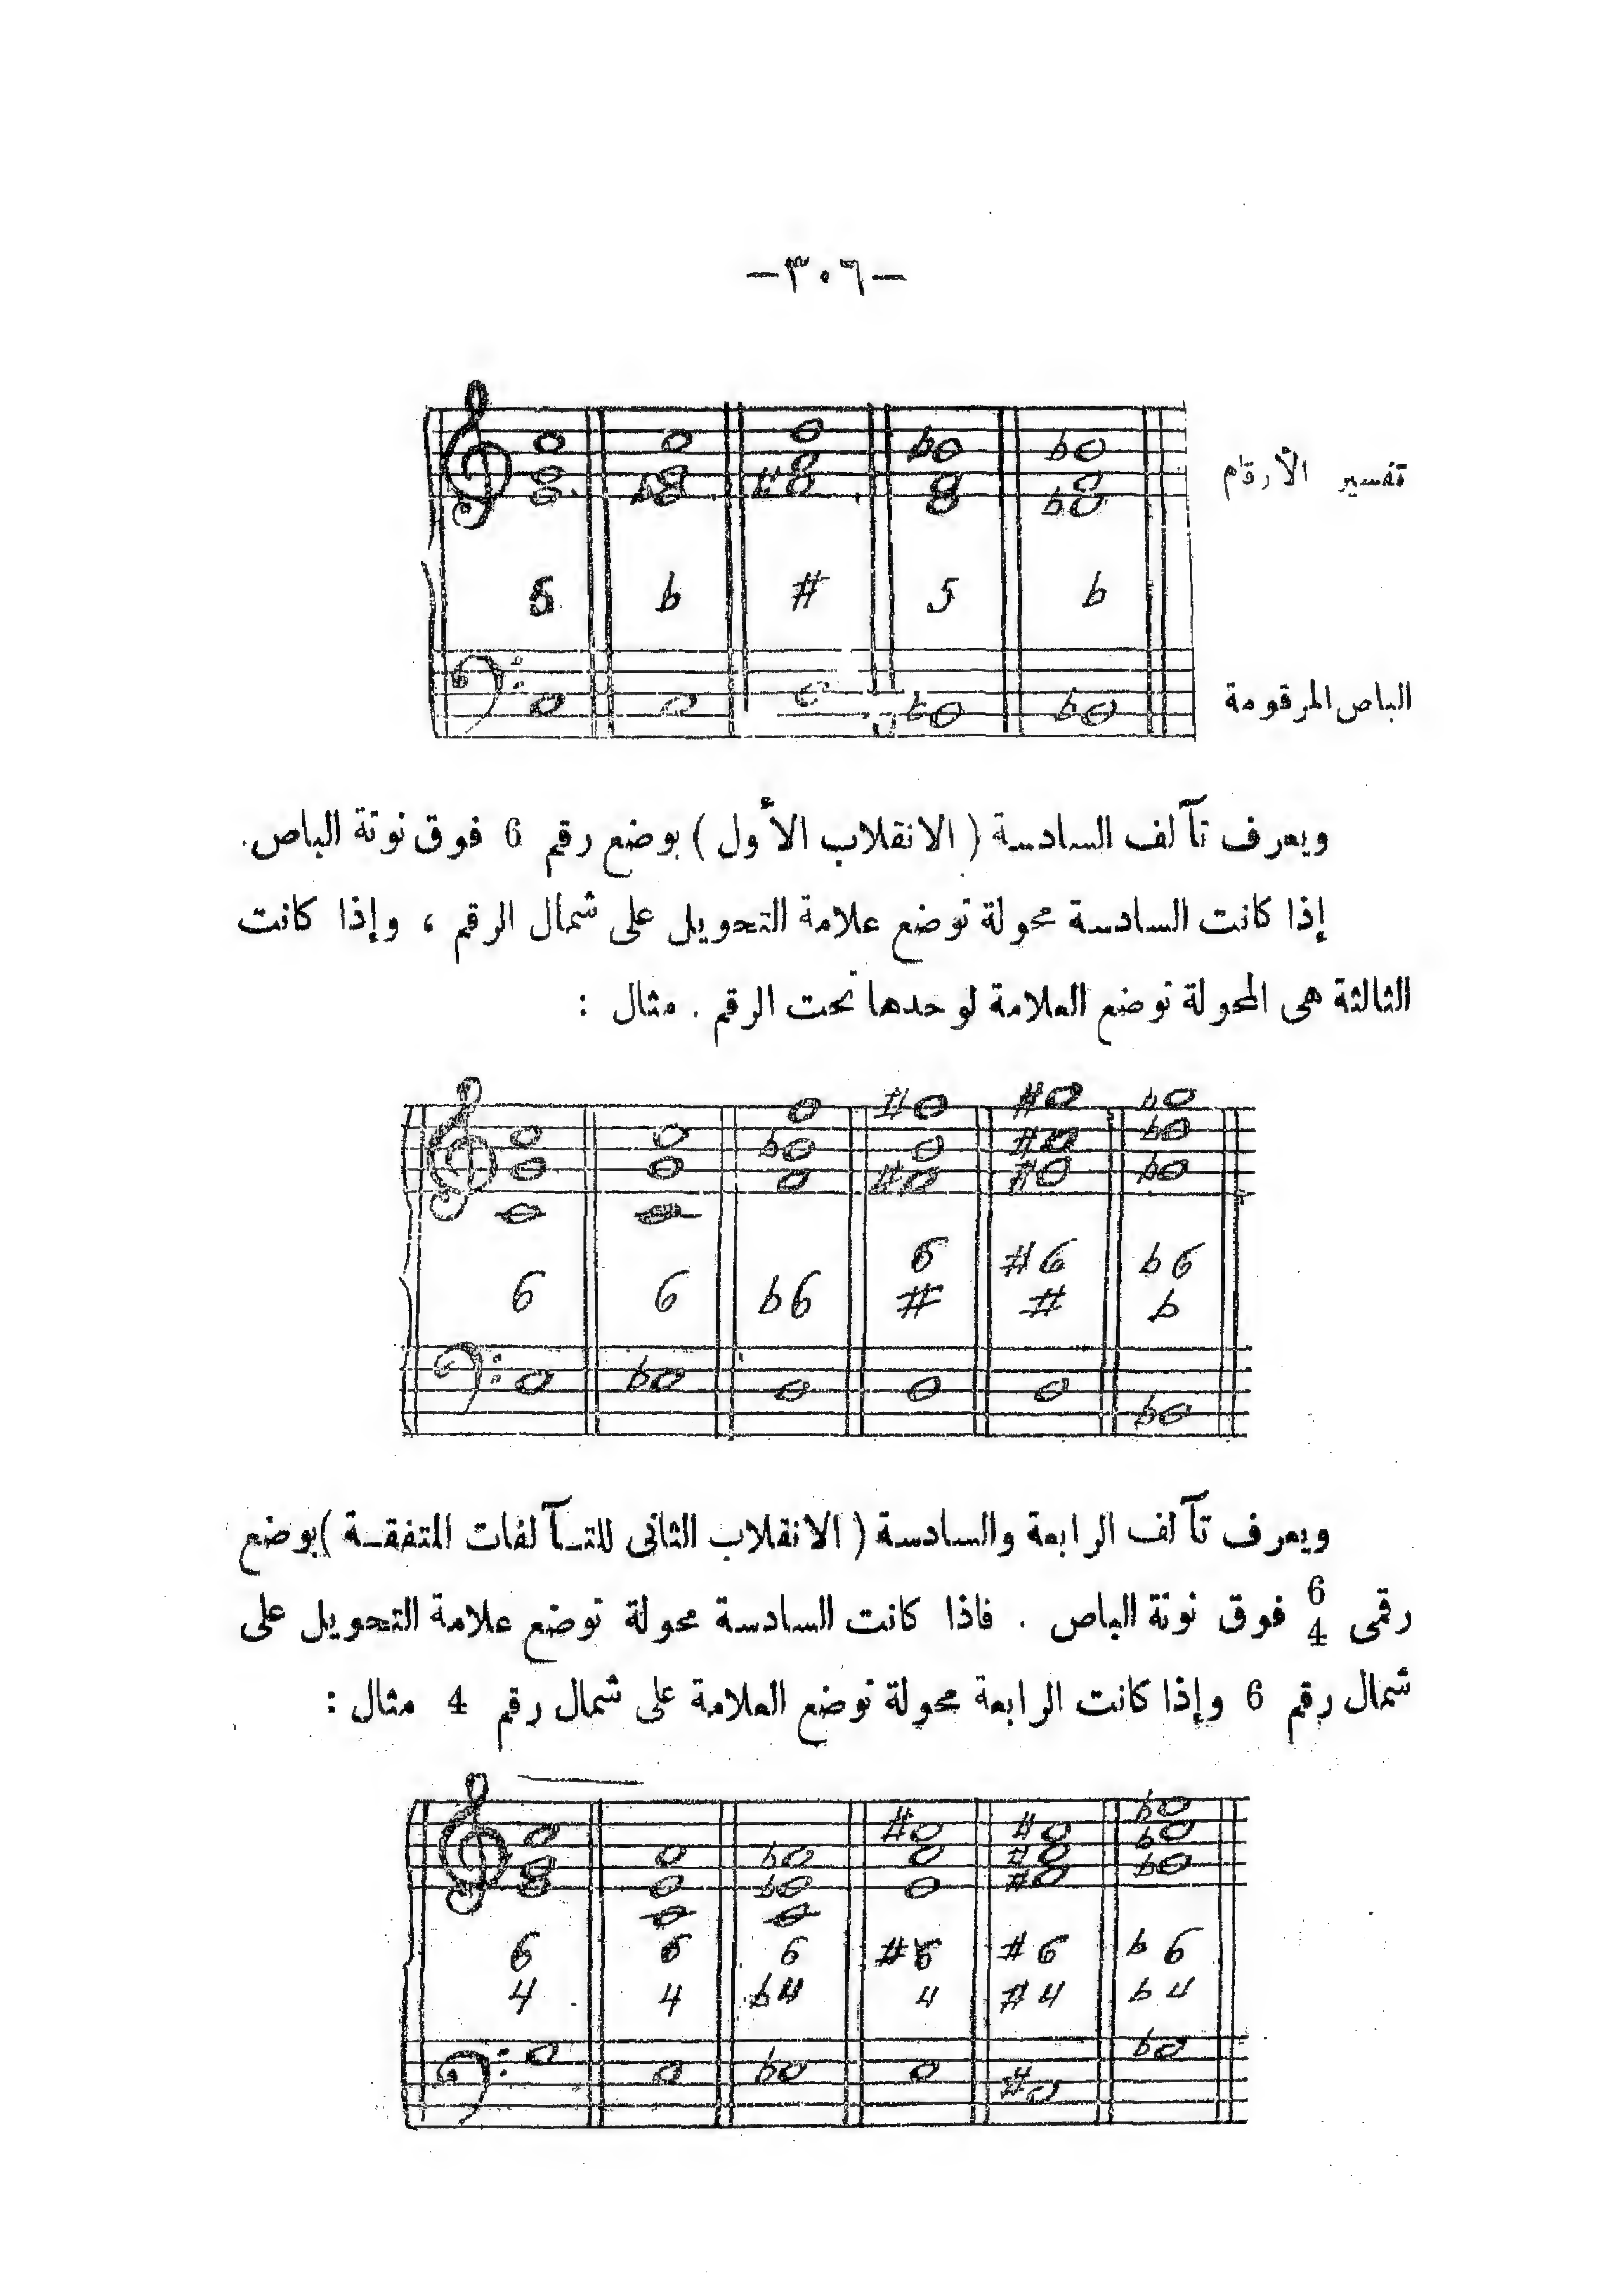 -٣٠٦-
تفسير الأرقام
5 b # 5 b
الباص المرقومة
ويعرف تآلف السادسة ( الانقلاب الأول ) بوضع رقم 6 فوق نوتة الباص.
إذا كانت السادسة محولة توضع علامة التحويل على شمال الرقم ، وإذا كانت
الثالثة هى المحولة توضع العلامة لوحدها تحت الرقم . مثال :
6 #6 b6
6 6 b6 # # b
ويعرف تآلف الرابعة والسادسة ( الانقلاب الثانى للتـآلفات المتفقـة )بوضع
رقمى 6 4 فوق نوتة الباص . فاذا كانت السادسة محولة توضع علامة التحويل على
شمال رقم 6 وإذا كانت الرابعة محولة توضع العلامة على شمال رقم 4 مثال :
6 6 6 #6 #6 b6
4 4 b4 4 #4 b4